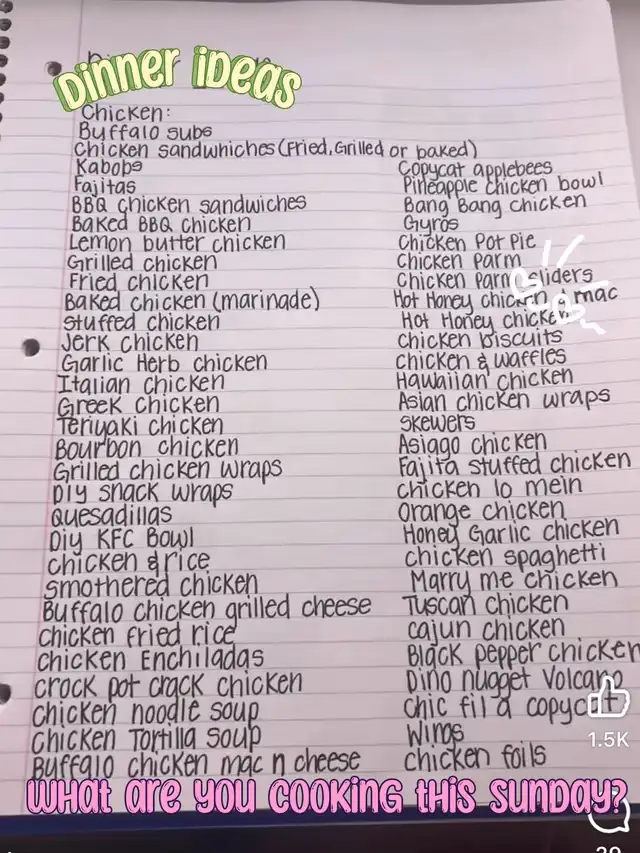 Dinner ideas
Chicken:
Buffalo subs
Chicken sandwhiches (Fried, Grilled or baked)
Kabobs
Fajitas
BBQ chicken sandwiches
Baked BBQ chicken
Lemon butter chicken
Grilled chicken
Fried chicken
Baked chicken (marinade)
stuffed chicken
Jerk chicken
Garlic Herb chicken
Italian chicken
Greek chicken
Teriyaki chicken
Bourbon chicken
Grilled chicken wraps
DIY snack wraps
Quesadillas
Diy KFC Bowl
chicken & rice
smothered chicken
Buffalo chicken grilled cheese
chicken fried rice
chicken Enchiladas
crock pot crack chicken
chicken noodle soup
chicken Tortilla soup
Buffalo chicken mac n cheese
Copycat applebees
Pineapple chicken bowl
Bang Bang chicken
Gyros
Chicken Pot Pie
Chicken Parm
Chicken Parm sliders
Hot Honey chicken & mac
Hot Honey chicken
chicken biscuits
chicken & waffles
Hawaiian chicken
Asian chicken wraps
skewers
Asiago chicken
Fajita stuffed chicken
chicken lo mein
Orange chicken
Honey Garlic chicken
chicken spaghetti
Marry me chicken
Tuscan chicken
cajun chicken
Black pepper chicken
Dino nugget Volcano
chic fil a copycat
Wings
chicken foils
1.5K
What are you cooking this sunday?